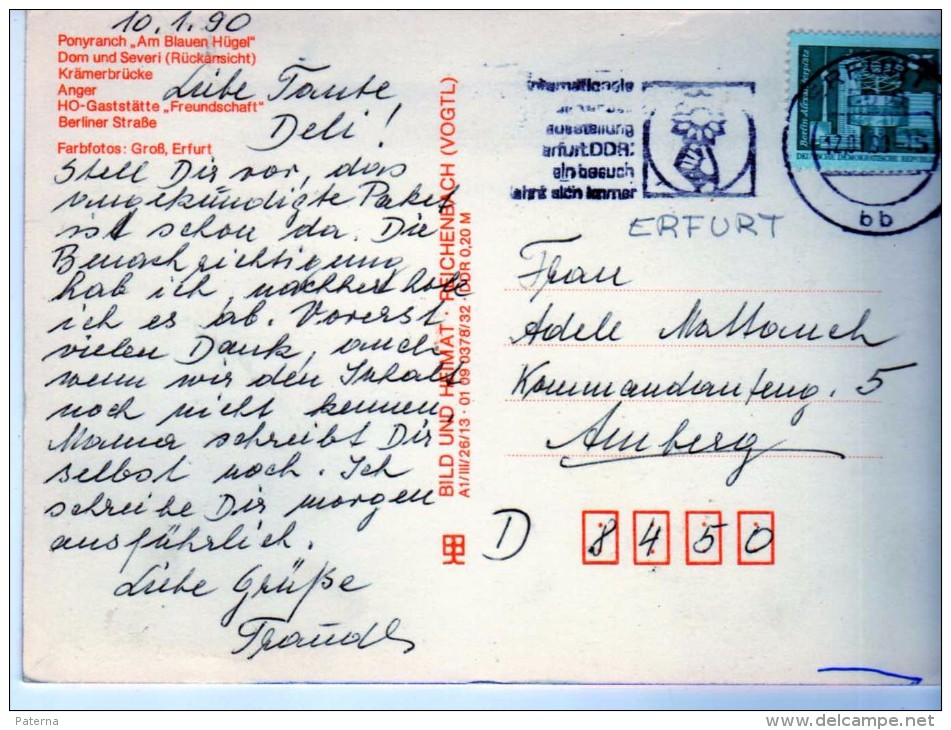 10.1.90
Ponyranch „Am Blauen Hügel"
Dom und Severi (Rückansicht)
Krämerbrücke
Anger
HO-Gaststätte „Freundschaft"
Berliner Straße
Farbfotos: Groß, Erfurt
Liebe Tante
Deli!
Stell Dir vor, das
angekündigte Paket
ist schon da. Die
Benachrichtigung
hab ich, nachher hole
ich es ab. Vorerst
vielen Dank, auch
wenn wir den Inhalt
noch nicht kennen,
Mama schreibt Dir
selbst noch. Ich
schreibe Dir morgen
ausführlich.
Liebe Grüße
Traudl
BILD UND HEIMAT · REICHENBACH (VOGTL)
A1/III/26/13 · 01 09 0378/32 · (DDR 0,20 M
internationale
ausstellung
erfurt DDR:
ein besuch
lohnt sich immer
Berlin Alexanderplatz
DEUTSCHE DEMOKRATISCHE REPUBLIK
bb
ERFURT
Frau
Adele Mattauch
Kommandanteng. 5
Amberg
D 8450
Paterna
www.delcampe.net